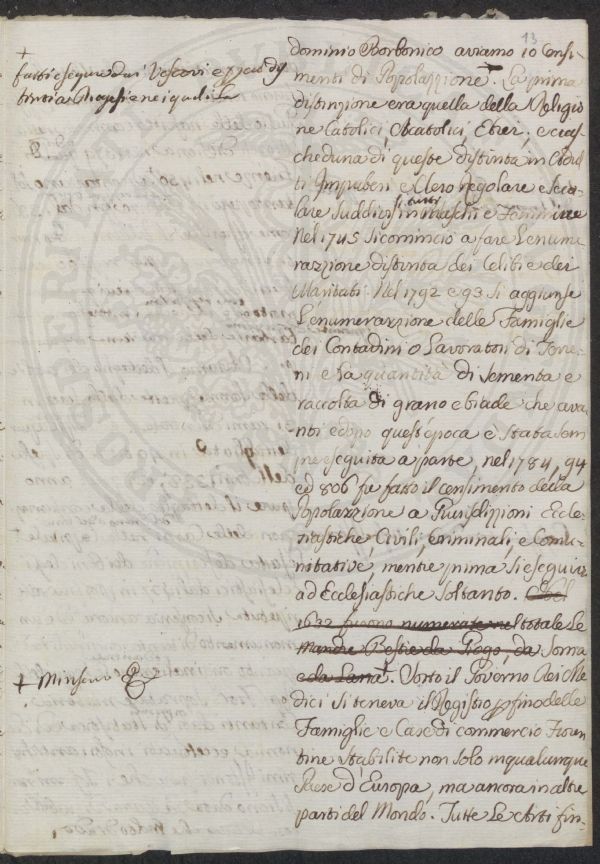 13
+
fatti eseguire dai Vescovi e
dominio Borbonico aviamo 10 Censi-
menti di Popolazzione +. La prima
distinzione era quella della Religio
ne Catolici, Acatolici, Ebrei, e cias
cheduna di queste distinta in Adul
ti Impuberi e Clero Regolare e Seco-
lare Suddivisi tutti in Maschi e Femmine
Nel 1745 si comincio a fare L'enume
razzione distinta dei Celibi e dei
Maritati. Nel 1792 e 93 si aggiunse
L'enumerazzione delle Famiglie
dei Contadini o Lavoratori di Terre
ni e la quantità di sementa e
raccolta di grano e biade che ava
nti e dopo quest'epoca è stata sem
pre eseguita a parte, nel 1784, 94
ed 806 fu fatto il censimento della
Popolazzione a Giurisdizzioni Eccle-
siastiche Civili, criminali, e Comu-
nitative, mentre prima si eseguiva
ad Ecclesiastiche Soltanto. Nel
1632 furono numerate nel totale Le
Mandre Bestie da Giogo, da Soma
e da Lana +. Sotto il Governo Rei Me
dici si teneva il Registro perfino delle
Famiglie e Case di commercio Fioren
tine Stabilite non solo in qualunque
Paese d'Europa, ma ancora in altre
parti del Mondo. Tutte Le Arti fin-
+ Minserv